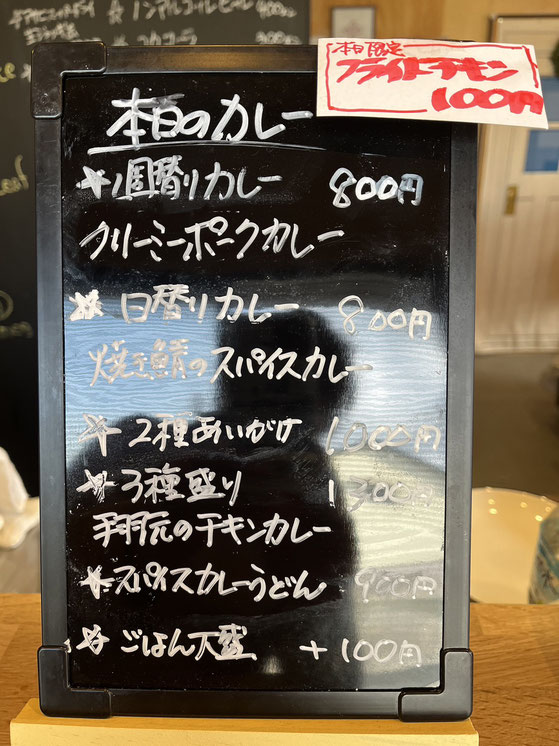 ☆ ノンアルコールビール
本日限定
フライドチキン
100円
本日のカレー
☆1週替りカレー 800円
クリーミーポークカレー
☆ 日替りカレー 800円
焼き鯖のスパイスカレー
☆ 2種あいがけ 1000円
☆ 3種盛り 1300円
翔流のチキンカレー
☆スパイスカレーうどん 900円
☆ ごはん大盛 +100円